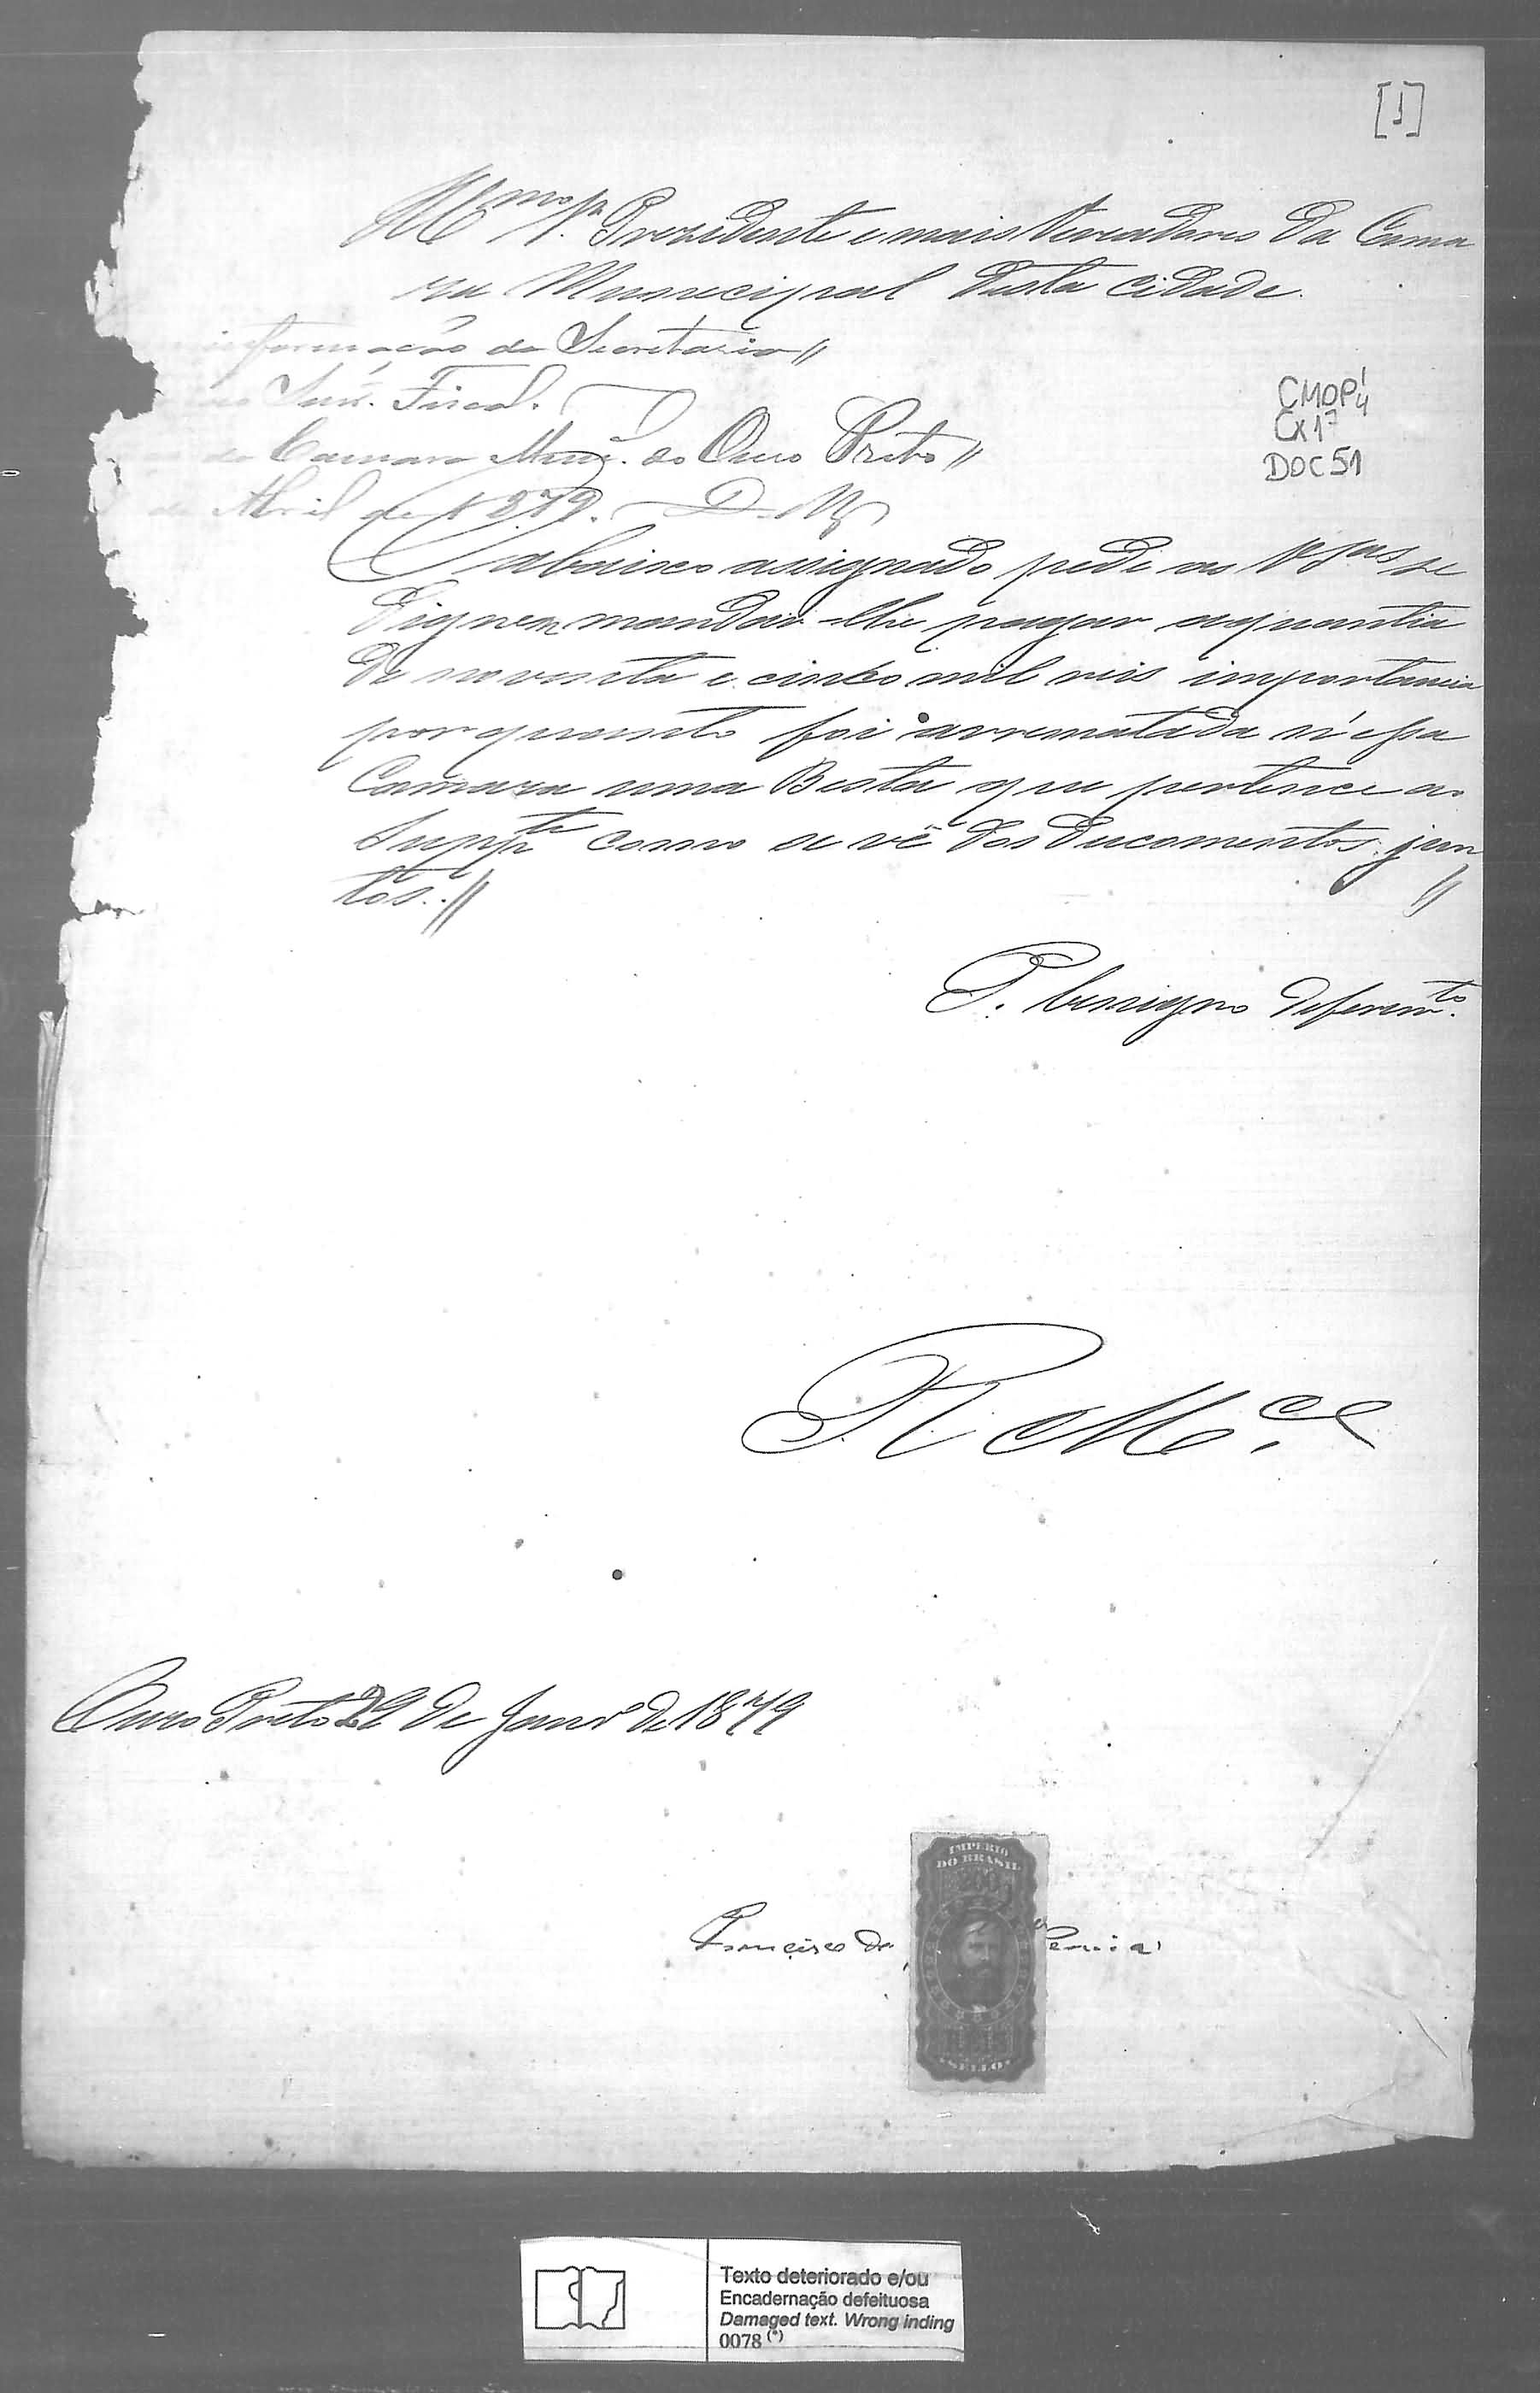 [1]
Illmo Sr. Prezidente e mais Vereadores da Cama
ra Municipal desta Cidade.
informação do Secretario//
Snr. Fiscal.
da Camara Mun. do Ouro Preto//
CMOP
Cx 17
DOC 51
de Abril de 1879.
O abaixo assignado pede as VSas se
dignem mandar-lhe pagar a quantia
de noventa e cinco mil reis importancia
por quanto foi arrematada n'essa
Camara uma Besta que pertence ao
Suppte como se vê dos ducomentos jun
tos.//
P. benigno deferimto.
R. Mce.
Ouro Preto 22 de Janrº de 1879
Francisco de Pereira
IMPERIO
DO BRASIL
200
SELLO
Texto deteriorado e/ou
Encadernação defeituosa
Damaged text. Wrong inding
0078 (*)